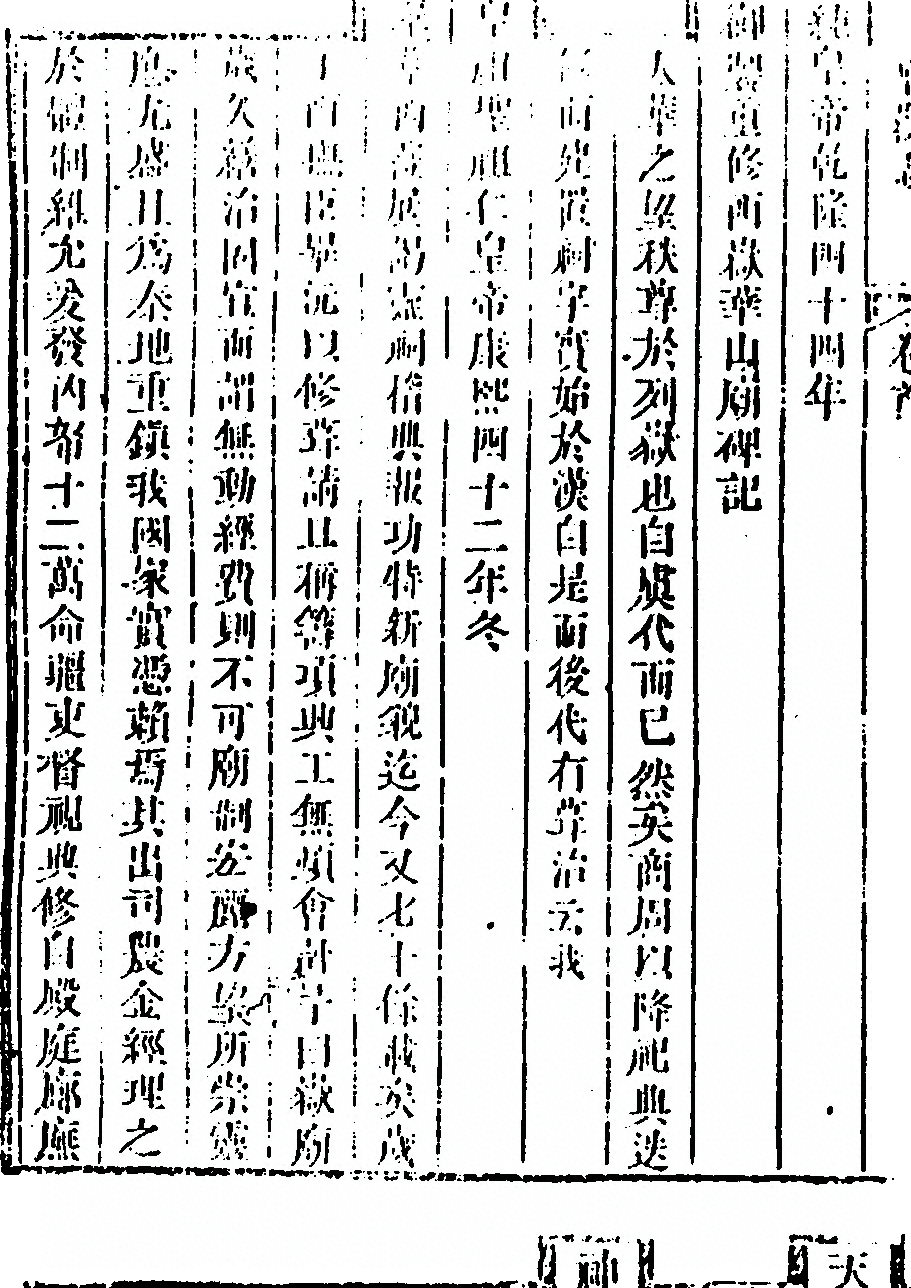 純皇帝乾隆四十四年
御製重修西嶽華山廟碑記
太華之望秩尊於列嶽也自虞代而已然矣商周以降祀典迭
而建置祠宇實始於漢自是而後代有葺治云我
聖祖仁皇帝康熙四十二年冬
展謁靈祠脩典報功特新廟貌迄今又七十餘載矣歲
丁酉撫臣畢沅以修葺請且稱籌項興工無煩會計予曰嶽廟
歲久繕治固宜而謂無動經費則不可廟制宏麗方望所崇靈
應尤盛且為秦地重鎮我國家實憑賴焉其出司農金經理之
於備制維允爰發內帑十二萬命疆吏督視典修自殿庭廊廡
卷首
神
天